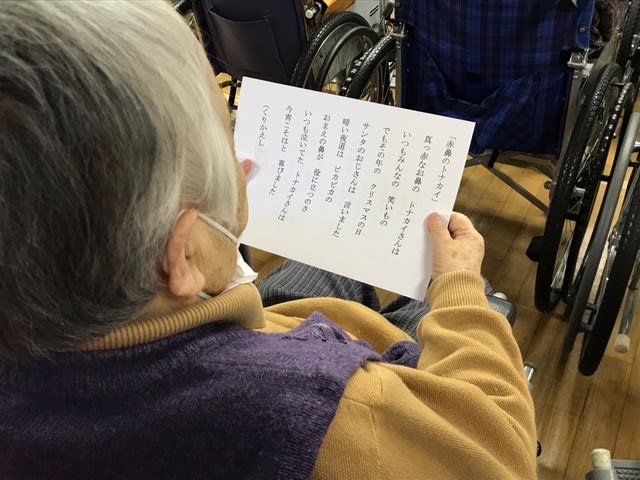 「赤鼻のトナカイ」
真っ赤なお鼻の　トナカイさんは
いつもみんなの　笑いもの
でもその年の　クリスマスの日
サンタのおじさんは　言いました
暗い夜道は　ピカピカの
おまえの鼻が　役に立つのさ
いつも泣いてた　トナカイさんは
今宵こそはと　喜びました
（くりかえし